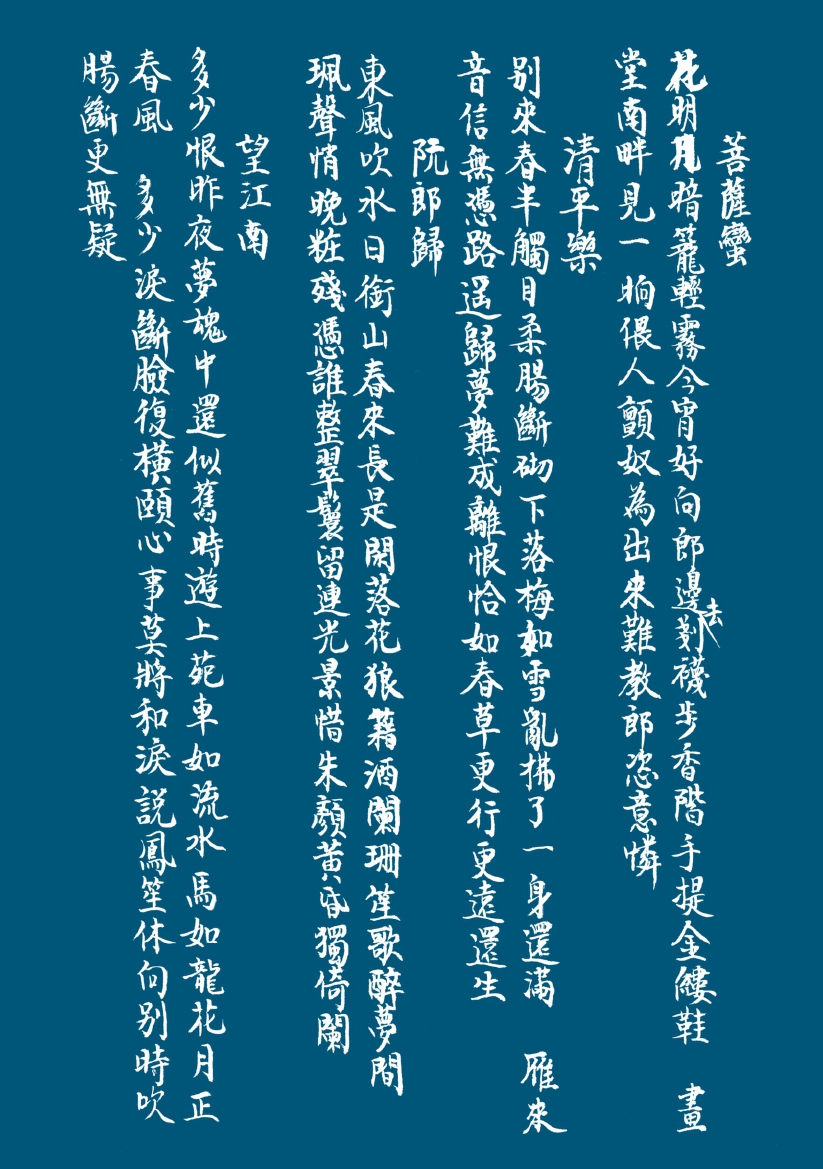 菩薩蠻
花明月暗籠輕霧今宵好向郎邊去剗襪步香階手提金縷鞋　畫
堂南畔見一晌偎人顫奴為出來難教郎恣意憐
清平樂
別來春半觸目柔腸斷砌下落梅如雪亂拂了一身還滿　雁來
音信無憑路遥歸夢難成離恨恰如春草更行更遠還生
阮郎歸
東風吹水日銜山春來長是閑落花狼藉酒闌珊笙歌醉夢間
珮聲悄晚粧殘憑誰整翠鬟留連光景惜朱顏黃昏獨倚闌
望江南
多少恨昨夜夢魂中還似舊時遊上苑車如流水馬如龍花月正
春風　多少淚斷臉復橫頤心事莫將和淚説鳳笙休向別時吹
腸斷更無疑